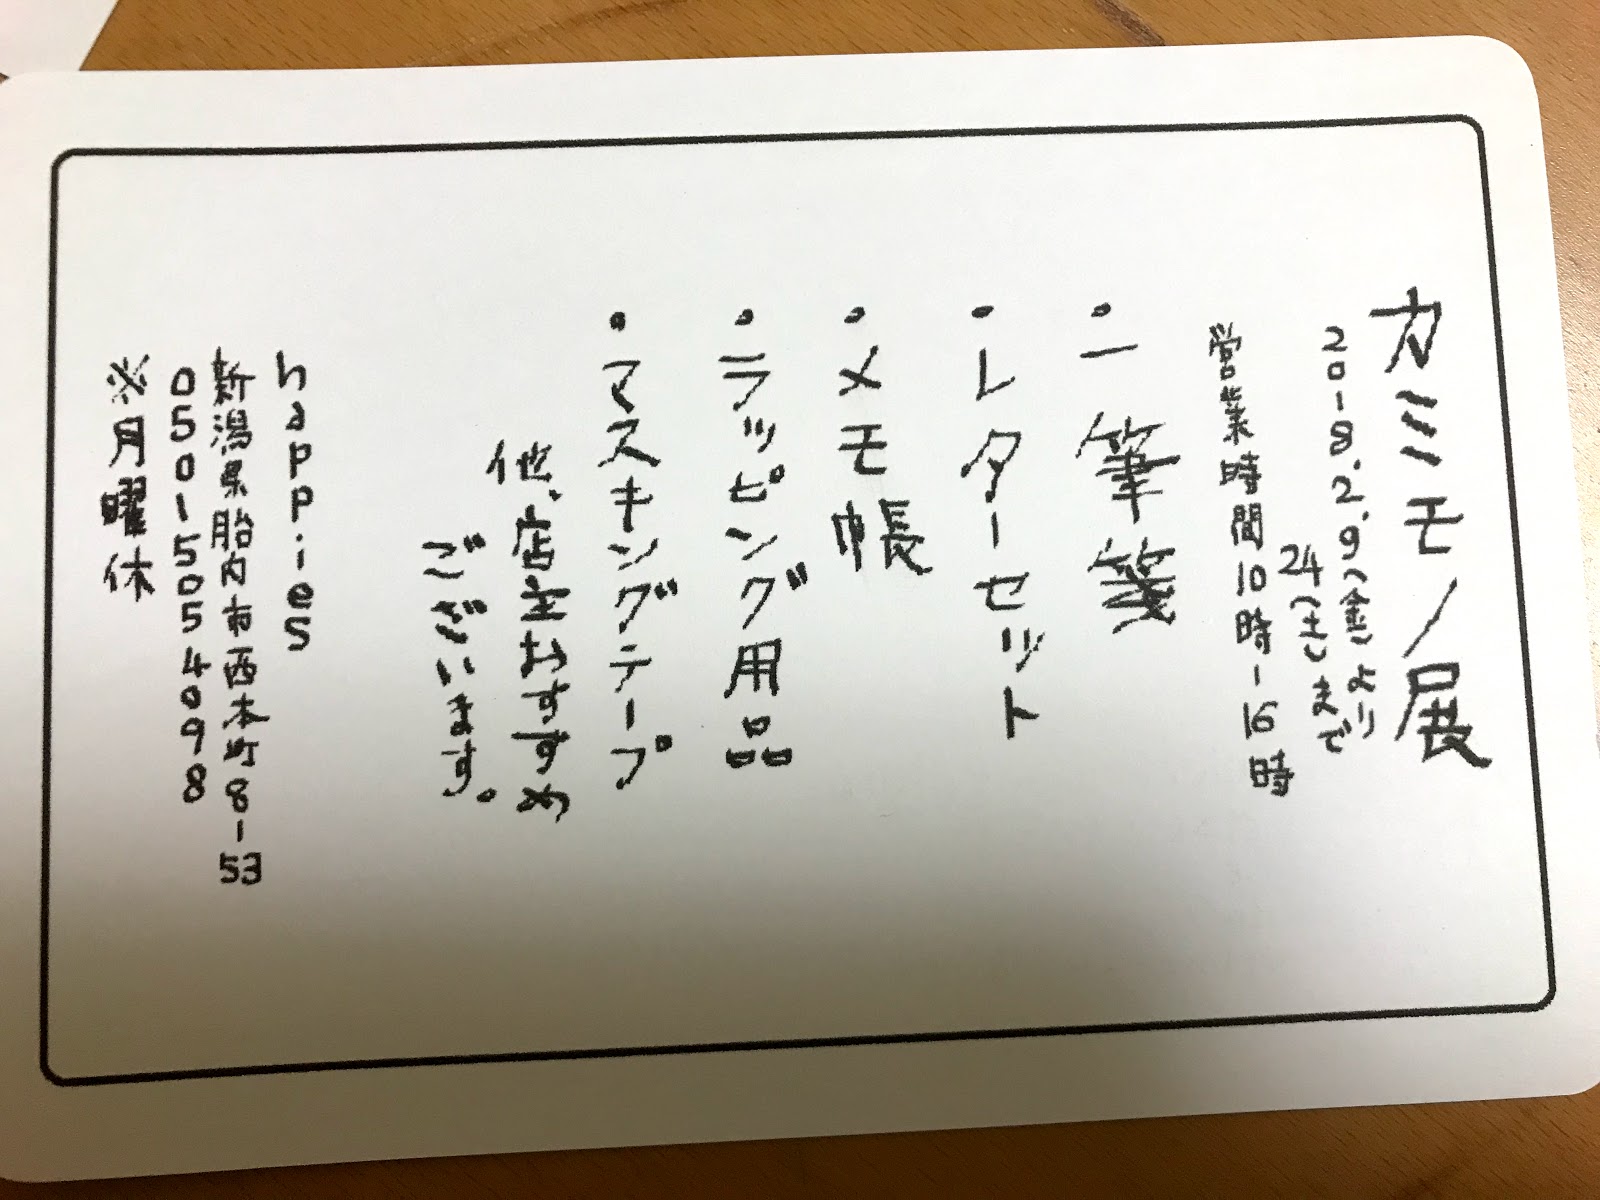 カミモノ展
2018.2.9(金)より
24(土)まで
営業時間10時-16時
・一筆箋
・レターセット
・メモ帳
・ラッピング用品
・マスキングテープ
他、店主おすすめ
ございます。
happies
新潟県胎内市西本町8-53
05015054098
※月曜休